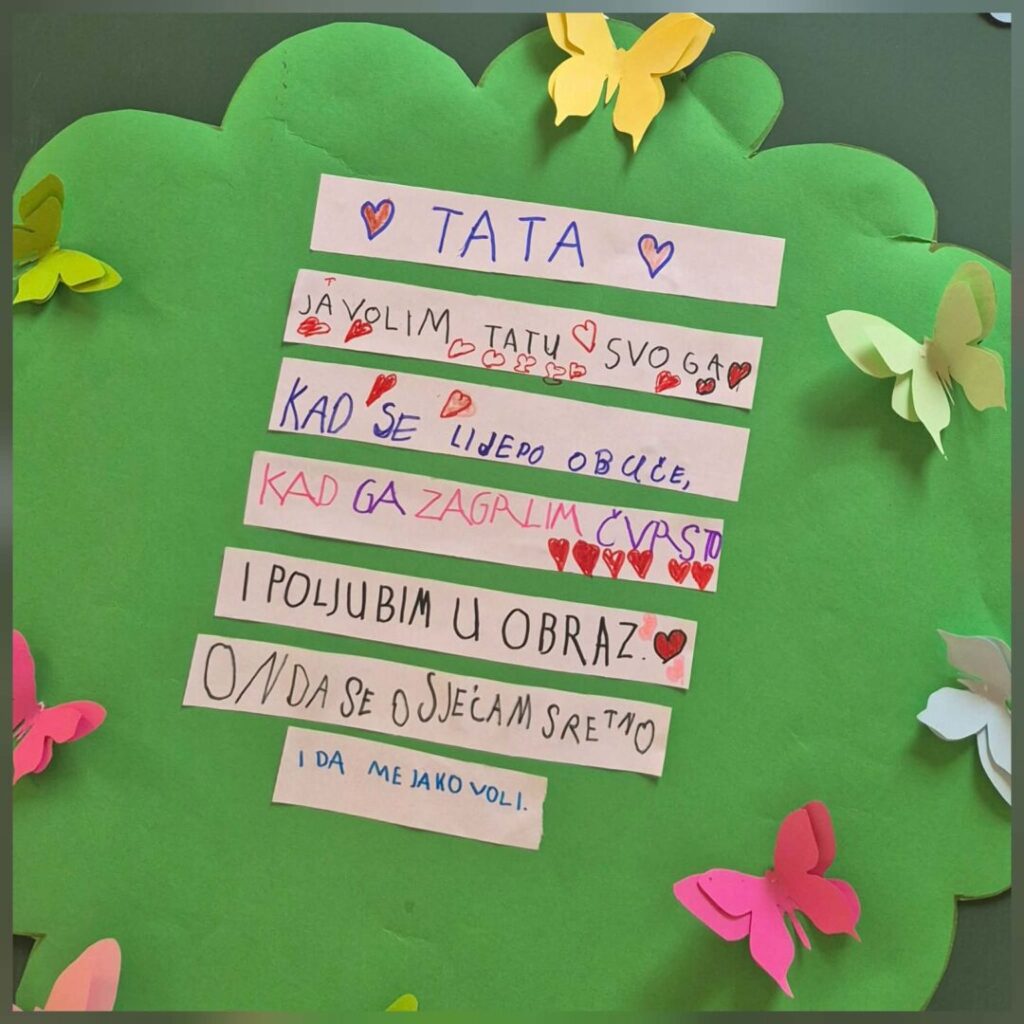 TATA
JA VOLIM TATU SVOGA,
KAD SE LIJEPO OBUČE,
KAD GA ZAGRLIM ČVRSTO
I POLJUBIM U OBRAZ.
ONDA SE OSJEĆAM SRETNO
I DA ME JAKO VOLI.